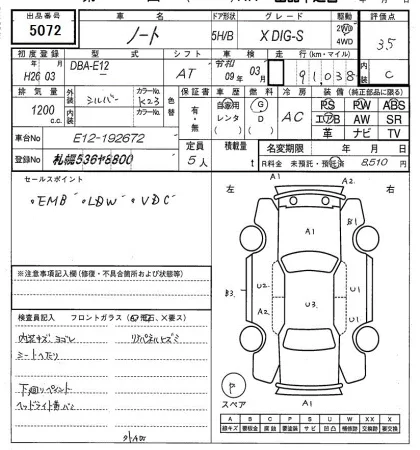 出品番号 車名 ドア形状 グレード 駆動 評価点
5072 ノート 5H/B X DIG-S 2WD 4WD 3.5
初度登録 型式 シフト 車検 走行(km・マイル) 内装
H26年 03月 DBA-E12 AT 令和 09年 03月 91,038 C
排気量 外装 カラーNo. 色替 保証書 車歴 燃料 冷房 装備(純正部品に限る)
1200 c.c. シルバー K23 有・無 自家用 レンタ G D AC PS PW ABS
内装 カラーNo. エアB AW SR
革 ナビ TV
車台No E12-192672 定員 積載量 名変期限 年 月 日
登録No 札幌536ｻ8800 5人 t R料金 未預託・預託済 8510円
セールスポイント
・EMB ・LDW ・VDC
左 右
A1
A2
A1
B1
B3
U2 U3 U1
A2 U1
A2
A1
スペア
※注意事項記入欄(修復・不具合箇所および状態)
検査員記入 フロントガラス(○飛石、×要ス)
内装キズ ヨゴレ リアパネルヒズミ
シートヘタリ
下回りペイント
A B C P S U W XX X
線キズ 要板金 腐蝕 要塗装 サビ 凹凸 補修跡 交換跡 要交換